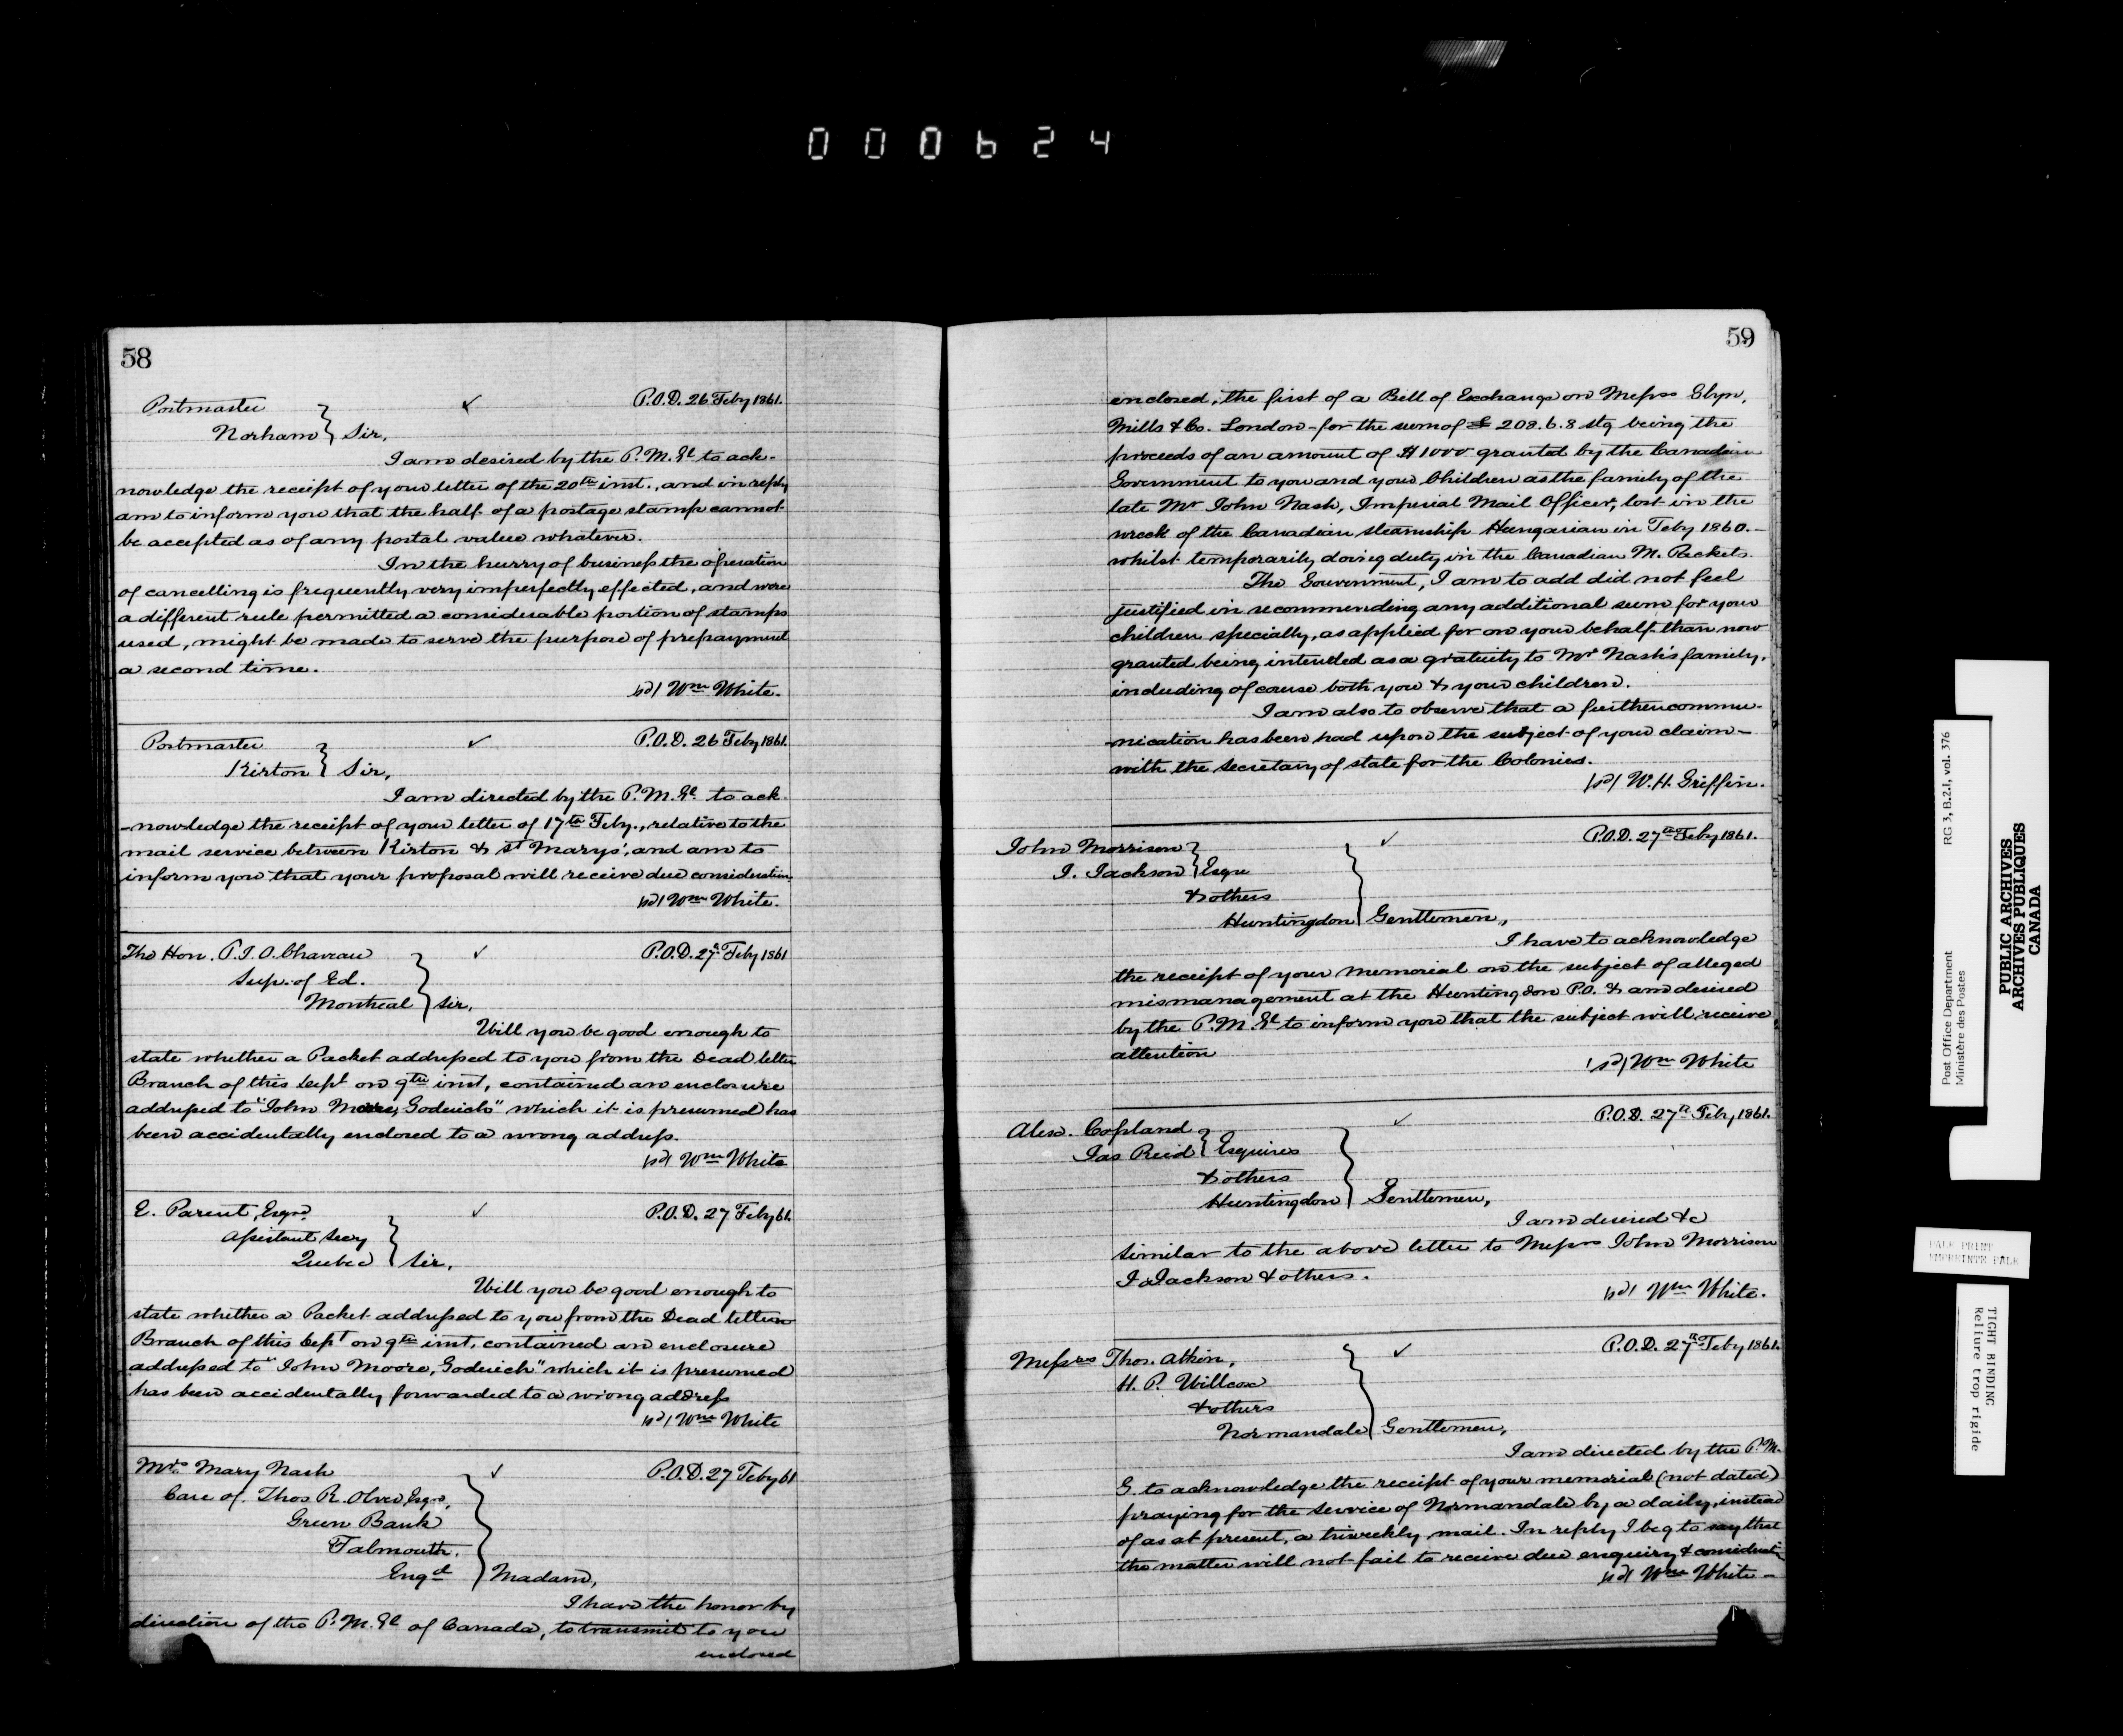 000624
58
Postmaster
Norham } Sir,
P.O.D. 26 Feby 1861.
I am desired by the P.M. Gl to ack-
nowledge the receipt of your letter of the 20th inst., and in reply
am to inform you that the half of a postage stamp cannot
be accepted as of any postal value whatever.
In the hurry of business the operation
of cancelling is frequently very imperfectly effected, and were
a different rule permitted a considerable portion of stamps
used, might be made to serve the purpose of prepayment
a second time.
sd/ Wm White.
Postmaster
Kirton } Sir,
P.O.D. 26 Feby 1861.
I am directed by the P.M. Gl. to ack.
-nowledge the receipt of your letter of 17th Feby., relative to the
mail service between Kirton & St Marys', and am to
inform you that your proposal will receive due consideration.
sd/ Wm White.
The Hon. P.J.O. Chaveau
Sup. of Ed.
Montreal } Sir,
P.O.D. 27th Feby 1861
Will you be good enough to
state whether a Packet addressed to you from the Dead letter
Branch of this Dept on 9th inst, contained an enclosure
addressed to "John Moore, Goderich" which it is presumed has
been accidentally enclosed to a wrong address.
sd/ Wm White
E. Parent, Esqre.
Assistant Secy
Quebec } Sir,
P.O.D. 27 Feby 61.
Will you be good enough to
state whether a Packet addressed to you from the Dead letter
Branch of this Dept on 9th inst. contained an enclosure
addressed to "John Moore, Goderich" which it is presumed
has been accidentally forwarded to a wrong address
sd/ Wm White
Mrs. Mary Nash
Care of. Thos R. Olver, Esqre.,
Green Bank
Falmouth.
Engd } Madam,
P.O.D. 27 Feby 61
I have the honor by
direction of the P.M. Gl of Canada, to transmit to you
enclosed
59
enclosed, the first of a Bill of Exchange on Messrs Glyn,
Mills & Co. London - for the sum of £ 208.6.8 stg being the
proceeds of an amount of $1000 granted by the Canadian
Government to you and your Children as the family of the
late Mr John Nash, Imperial Mail Officer, lost in the
wreck of the Canadian steamship Hungarian in Feby 1860. -
whilst temporarily doing duty in the Canadian M. Packets.
The Government, I am to add did not feel
justified in recommending any additional sum for your
children specially, as applied for on your behalf than now
granted being intended as a gratuity to Mr Nash's family,
including of course both you & your children.
I am also to observe that a further commu-
-nication has been had upon the subject of your claim -
with the Secretary of State for the Colonies.
sd/ W.H. Griffin.
John Morrison
J. Jackson } Esqre
& others
Huntingdon } Gentlemen,
P.O.D. 27th Feby 1861.
I have to acknowledge
the receipt of your memorial on the subject of alleged
mismanagement at the Huntingdon P.O. & am desired
by the P.M. Gl to inform you that the subject will receive
attention
sd/ Wm White
Alexr. Copland
Jas Reid } Esquires
& others
Huntingdon } Gentlemen,
P.O.D. 27th Feby 1861.
I am desired &c
similar to the above letter to Messrs John Morrison
J. Jackson & others.
sd/ Wm White.
Messrs Thos. Atkin,
H.P. Willcox
& others
Normandale } Gentlemen,
P.O.D. 27th Feby 1861.
I am directed by the P.M.
G. to acknowledge the receipt of your memorial (not dated)
praying for the service of Normandale by a daily, instead
of as at present, a triweekly mail. In reply I beg to say that
the matter will not fail to receive due enquiry & consideration
sd/ Wm White -
Post Office Department
Ministère des Postes
RG 3, B.2.I, vol. 376
PUBLIC ARCHIVES
ARCHIVES PUBLIQUES
CANADA
PALE PRINT
EMPREINTE PALE
TIGHT BINDING
Reliure trop rigide